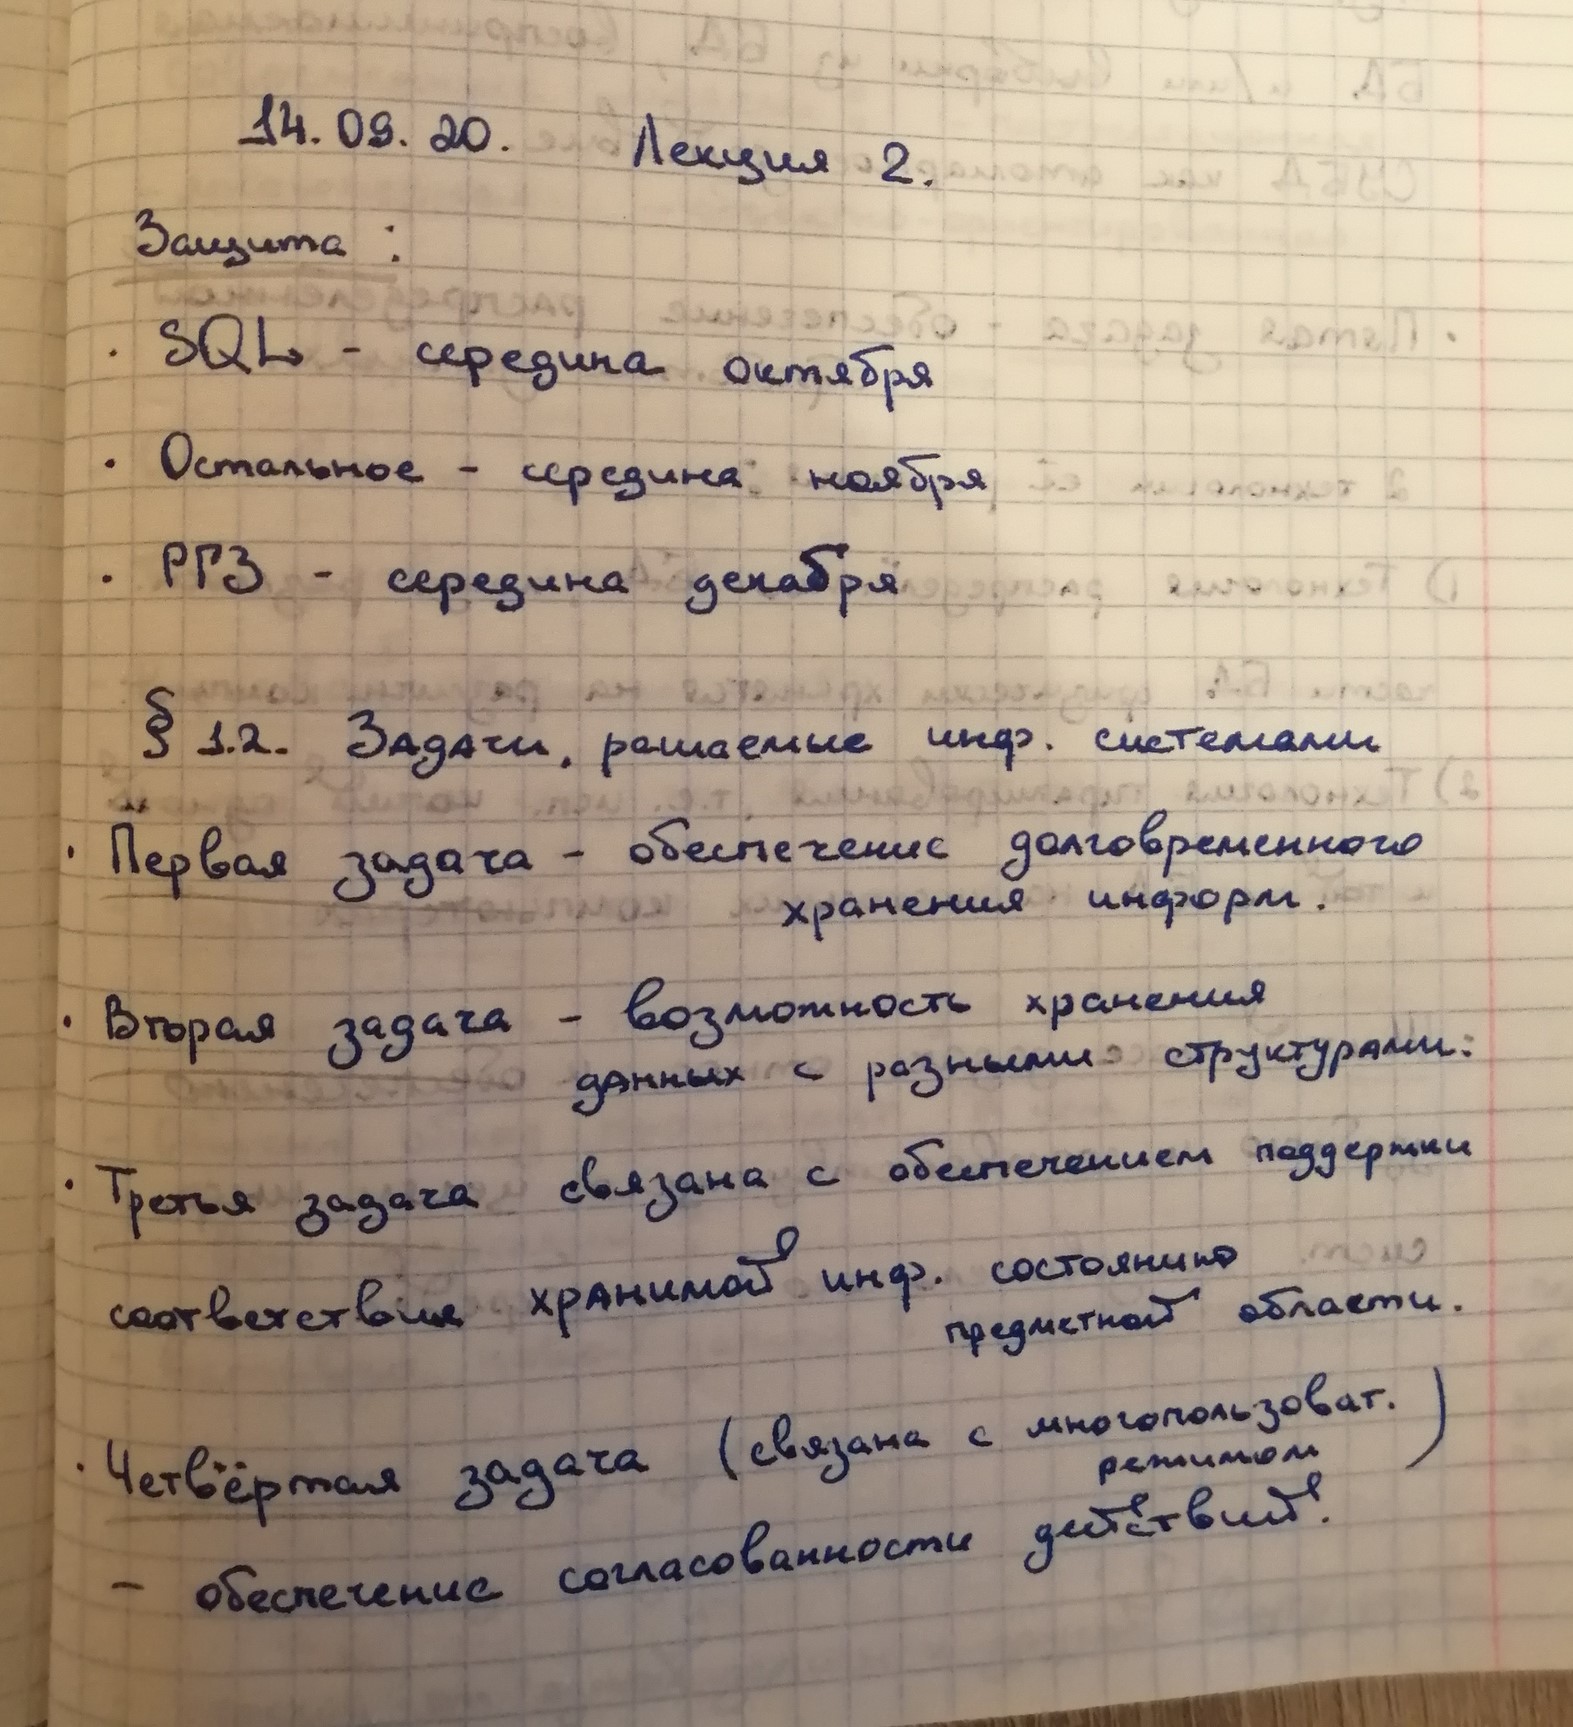 14.09.20. Лекция 2.
Защита:
· SQL - середина октября
· Остальное - середина ноября
· РГЗ - середина декабря
§ 1.2. Задачи, решаемые инф. системами
· Первая задача - обеспечение долговременного
хранения информ.
· Вторая задача - возможность хранения
данных с разными структурами.
· Третья задача связана с обеспечением поддержки
соответствия хранимой инф. состоянию
предметной области.
· Четвёртая задача (связана с многопользоват.
режимом)
- обеспечение согласованности действий.